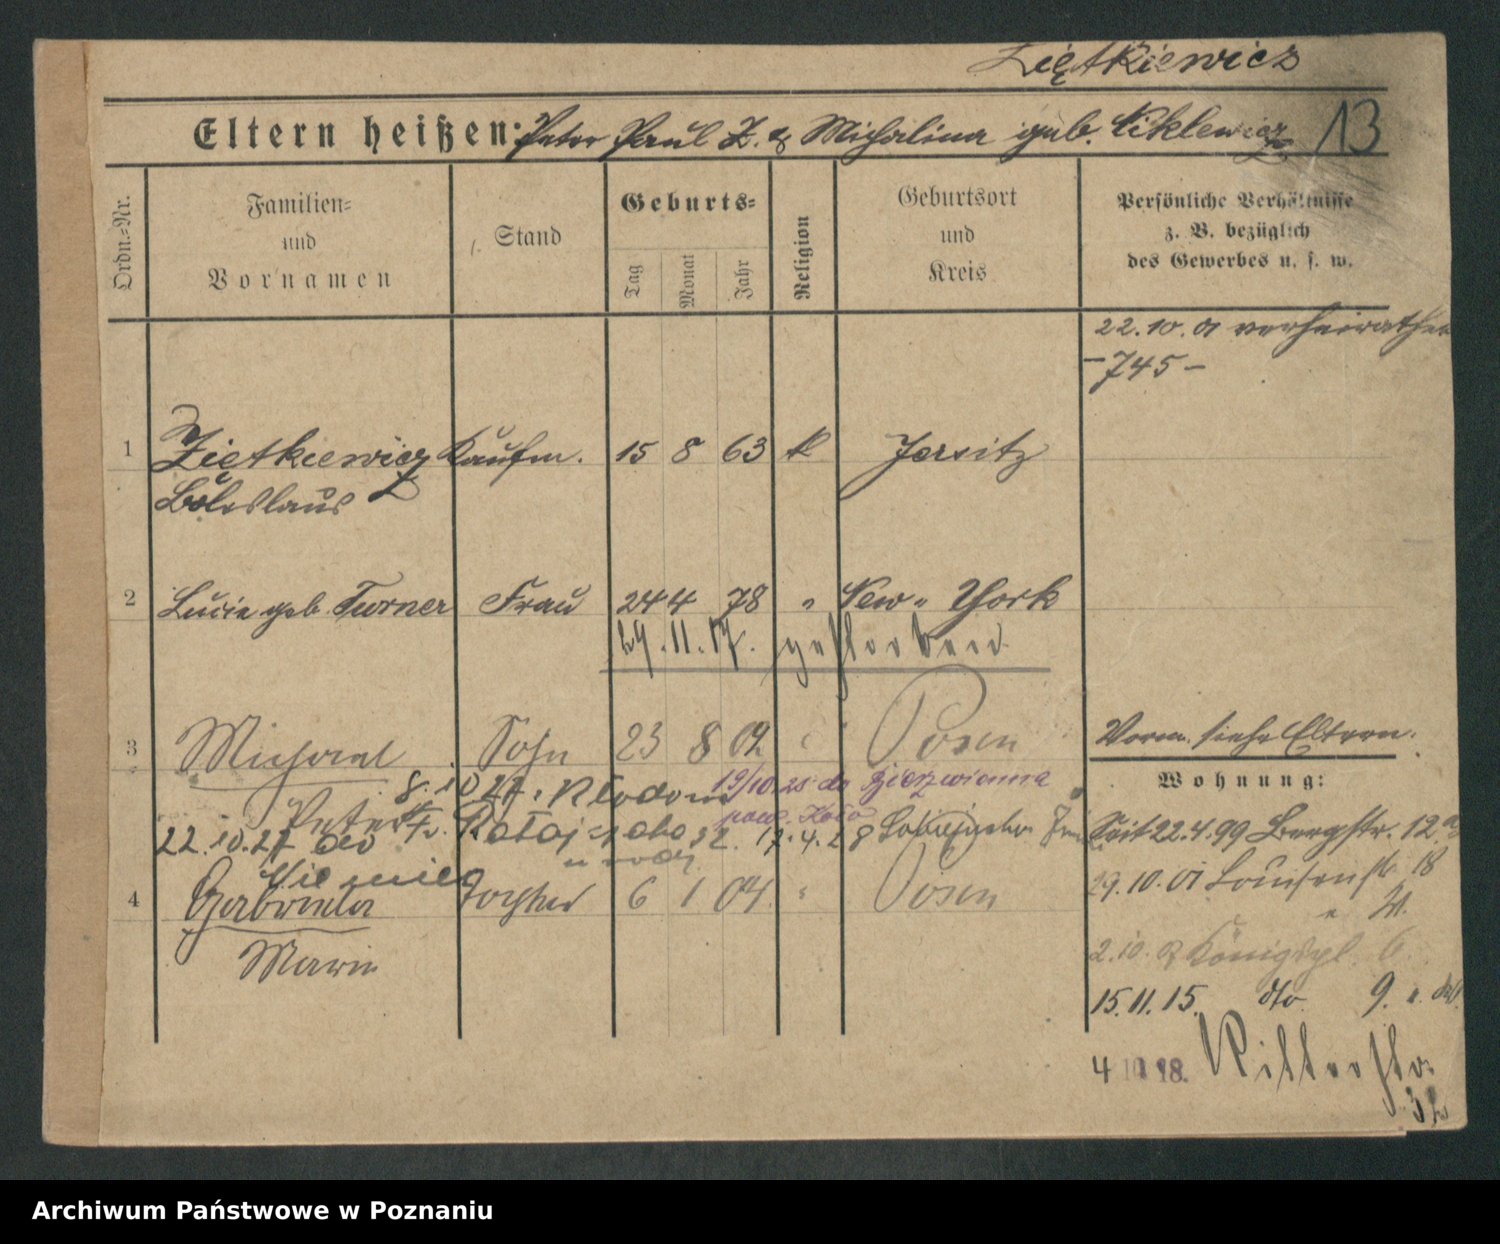 Ziętkiewicz
Eltern heißen: Peter Paul Z. & Michalina geb. Ciklewicz
13
Ordn.-Nr.
Familien-
und
Vornamen
Stand
Geburts-
Tag
Monat
Jahr
Religion
Geburtsort
und
Kreis
Persönliche Verhältnisse
z. B. bezüglich
des Gewerbes u. s. w.
22.10.01 verheirathet
-745-
1 Zietkiewicz Kaufm. 15 8 63 k Jersitz
Boleslaus
2 Lucie geb. Turner Frau 24 4 78 " New-York
29.11.17. gestorben
3 Michael Sohn 23 8 02 " Posen
Peter
8.10.27
19/10.28 do
pow. Koło
22.10.27 do
17.4.28
4 Gabriela Tochter 6 1 04. " Posen
Maria
Vorm. siehe Eltern.
Wohnung:
Seit 22.4.99 Bergstr. 12a
29.10.01 Louisenstr. 18
2.10. Königspl. 6
15.11.15. dto 9.
4 10 18. Ritterstr.